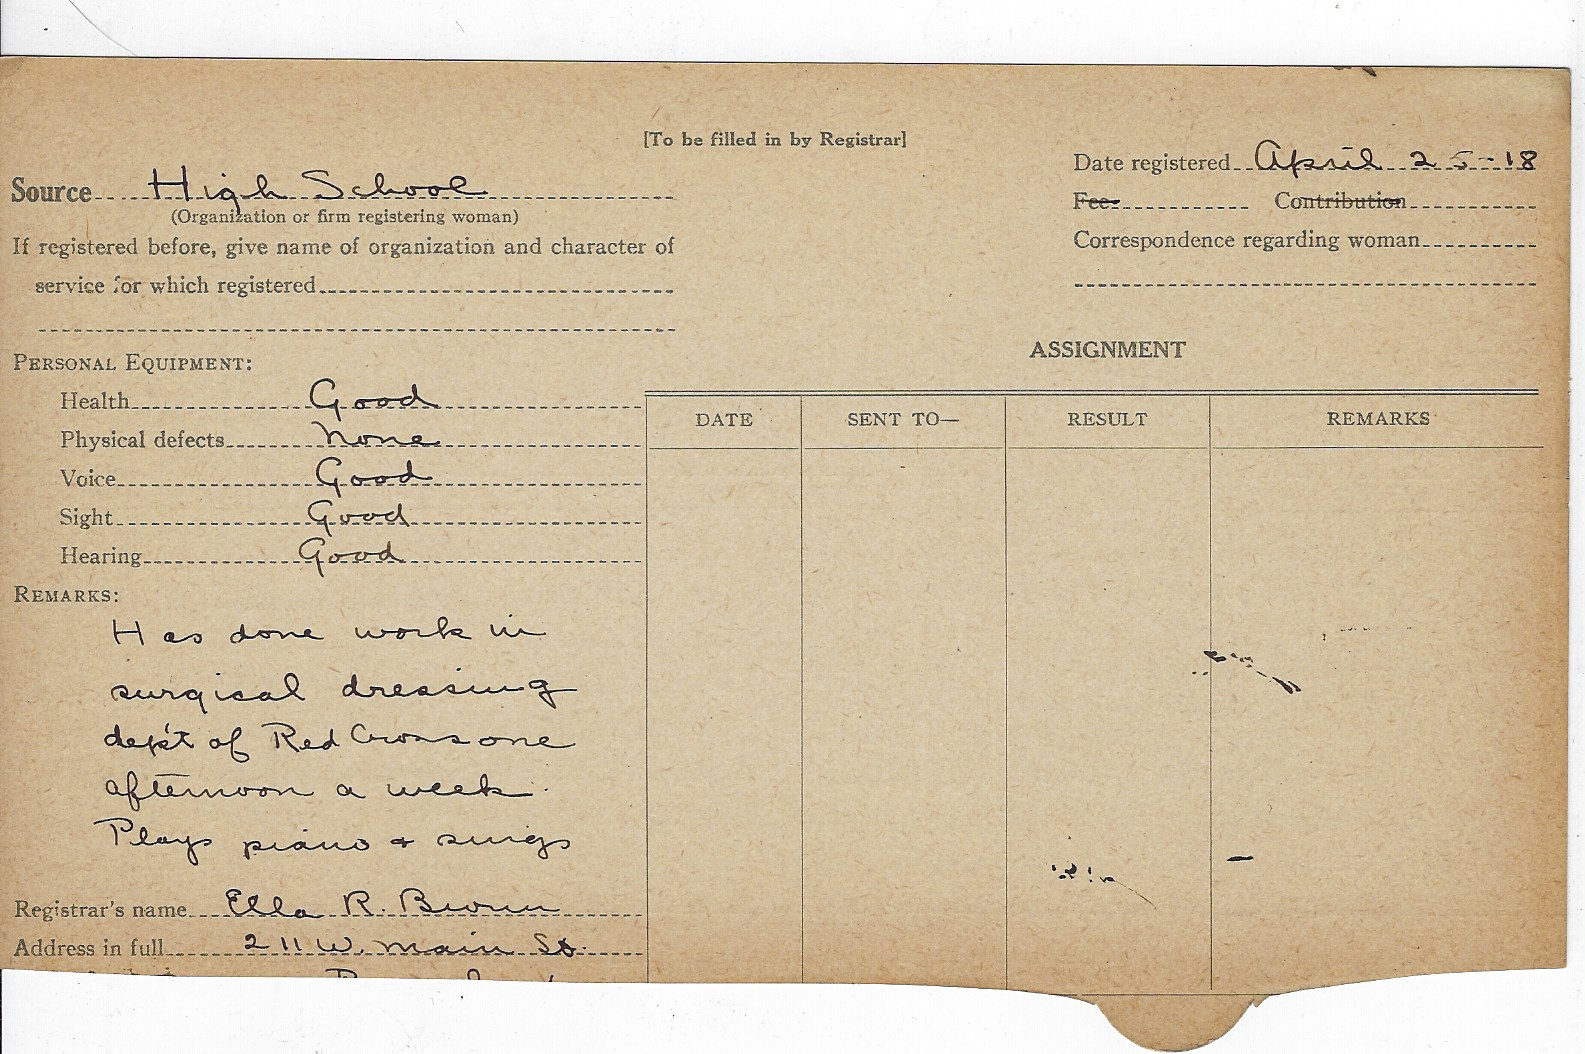 [To be filled in by Registrar]
Date registered April 25-18
Source High School
(Organization or firm registering woman)
Fee Contribution
If registered before, give name of organization and character of
Correspondence regarding woman
service for which registered
PERSONAL EQUIPMENT:
ASSIGNMENT
Health Good
Physical defects None
Voice Good
Sight Good
Hearing Good
DATE SENT TO— RESULT REMARKS
REMARKS:
Has done work in
surgical dressing
dep't of Red Cross one
afternoon a week.
Plays piano + sings
Registrar's name Ella R.
Address in full 211 W. Main St.